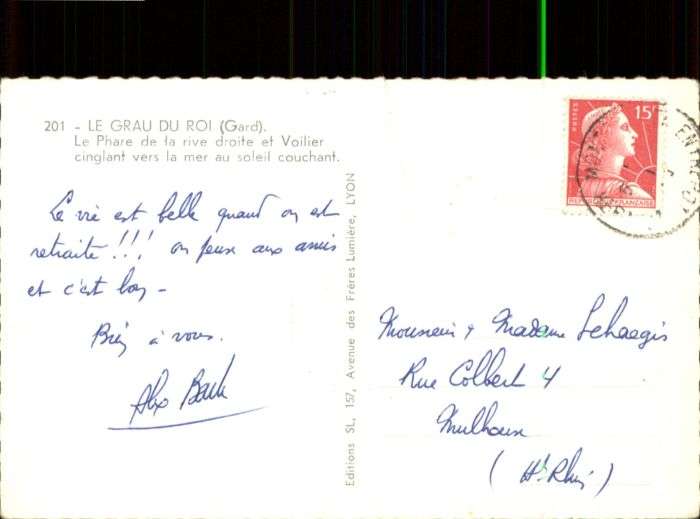 201 - LE GRAU DU ROI (Gard).
Le Phare de la rive droite et Voilier
cinglant vers la mer au soleil couchant.
La vie est belle quand on est
retraité!!! on pense aux amis
et c'est bon -
Bien à vous.
Editions SL, 157, Avenue des Frères Lumière, LYON
POSTES
15F
REPUBLIQUE FRANÇAISE
Monsieur & Madame
Rue Colbert 4
Mulhouse
(Ht Rhin)